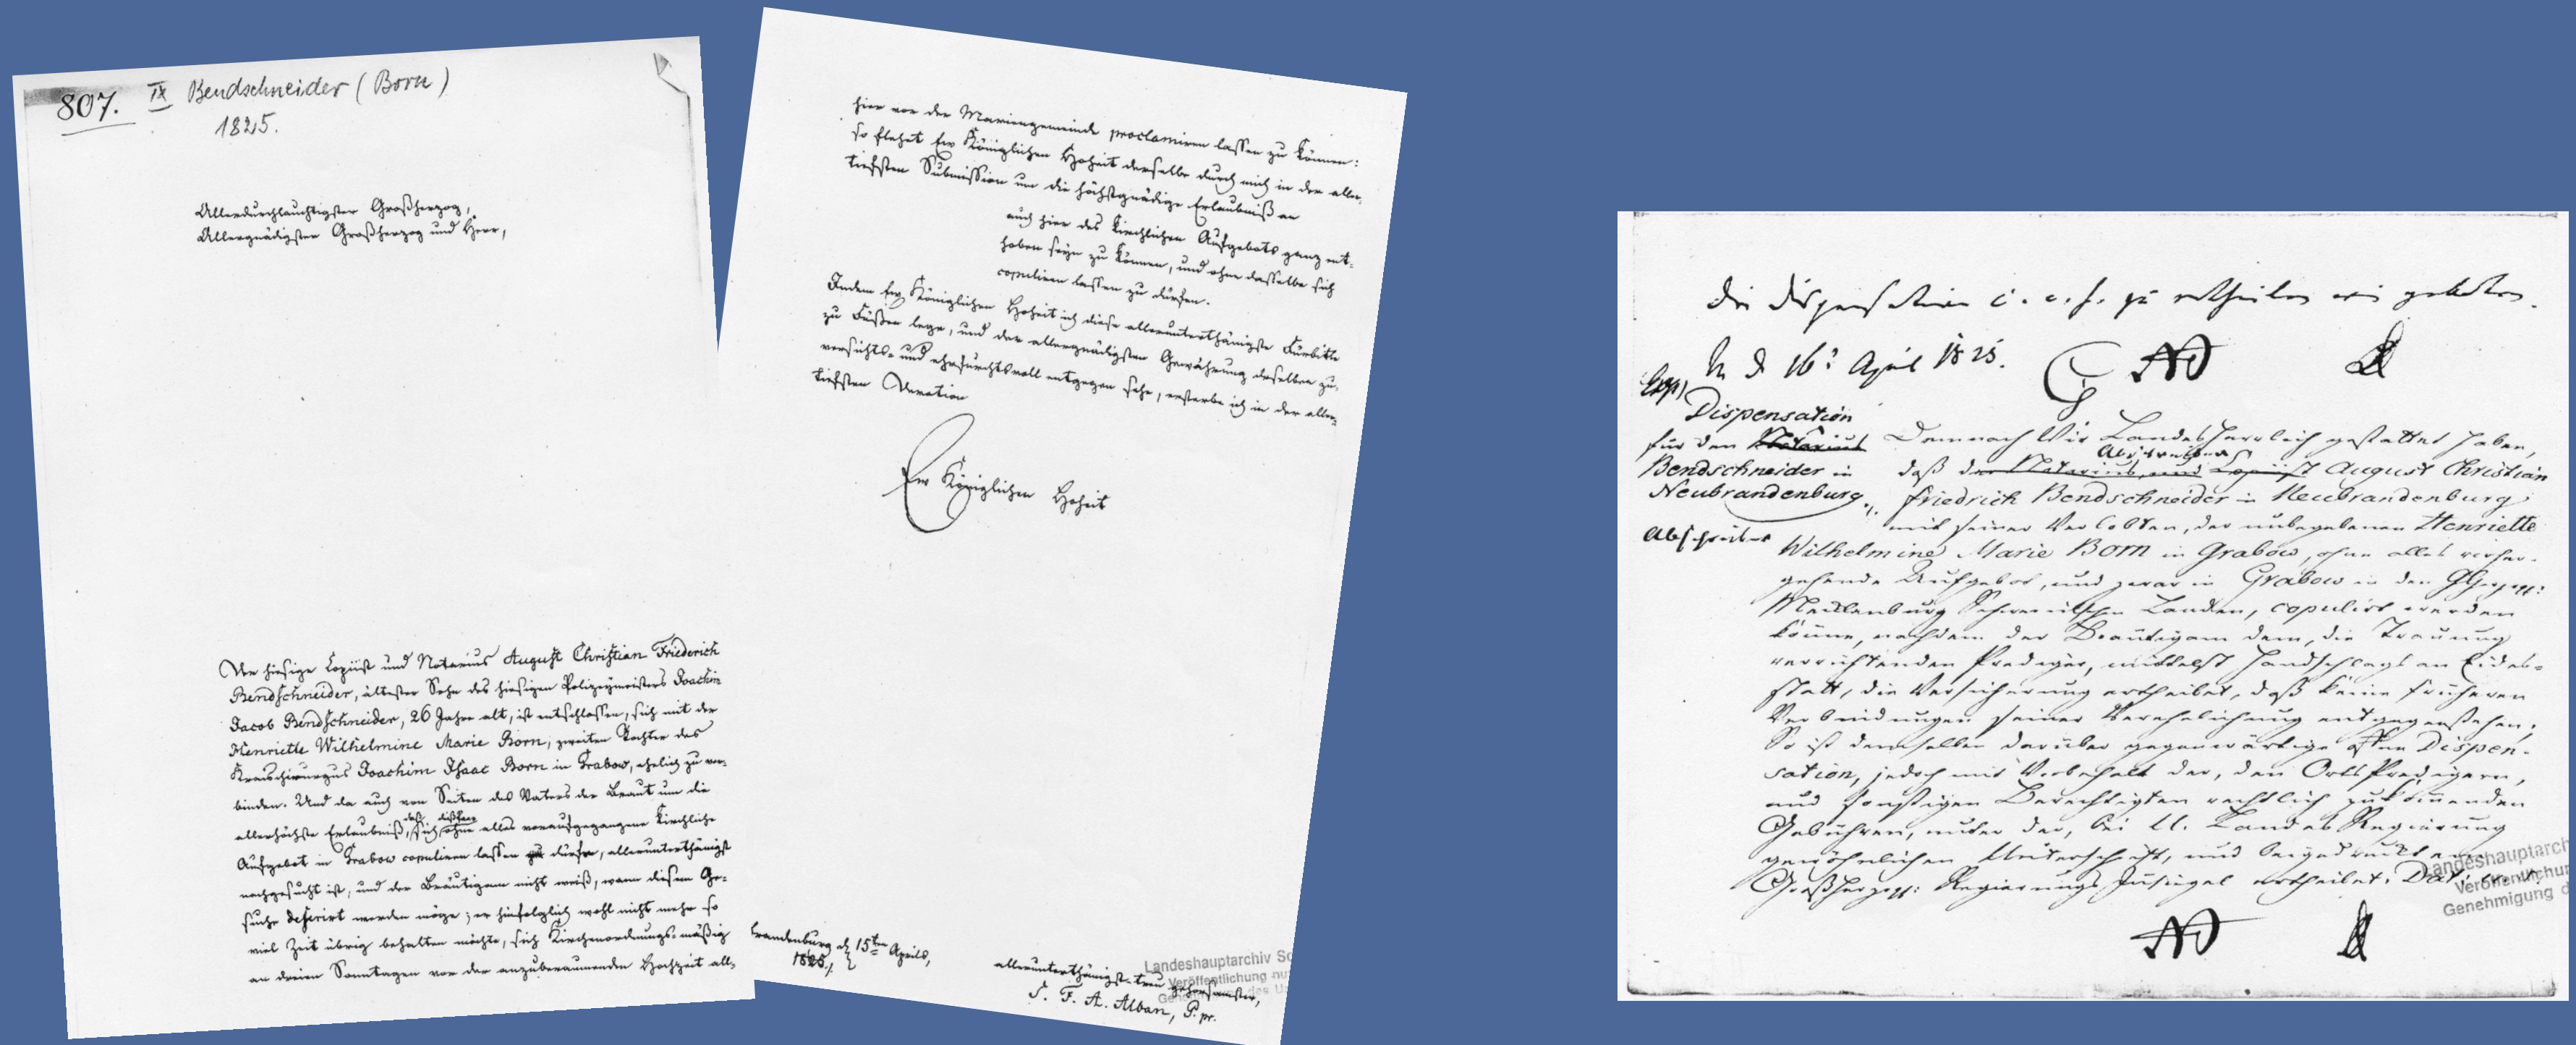 807. IX Bendschneider (Born)
1825.
Allerdurchlauchtigster Großherzog,
Allergnädigster Großherzog und Herr,
Der hiesige Copiist und Notarius August Christian Friederich
Bendschneider, ältester Sohn des hiesigen Polizeymeisters Joachim
Jacob Bendschneider, 26 Jahre alt, ist entschlossen, sich mit der
Henriette Wilhelmine Marie Born, zweiten Tochter des
Kreischirurgus Joachim Isaac Born in Grabow, ehelich zu ver-
binden. Und da auch von Seiten des Vaters der Braut um die
allerhöchste Erlaubniß, daß sich ohne alles voraufgegangene kirchliche
Aufgebot in Grabow copuliren lassen dürfen, allerunterthänigst
nachgesucht ist, und der Bräutigam nicht weiß, wann diesem Ge-
suche deferirt werden möge; er hinfolglich wohl nicht mehr so
viel Zeit übrig behalten möchte, sich Kirchenordnungs-mäßig
an dreien Sonntagen vor der anzuberaumenden Hochzeit all-
hier vor der Mariengemeinde proclamiren lassen zu können:
so flehet Ew Königlichen Hoheit derselbe durch mich in der aller-
tiefsten Submission um die höchstgnädige Erlaubniß an
auch hier des kirchlichen Aufgebots ganz ent-
hoben seyn zu können, und ohne dasselbe sich
copuliren lassen zu dürfen.
Indem Ew Königlichen Hoheit ich diese allerunterthänigste Fürbitte
zu Füßen lege, und der allergnädigsten Gewährung derselben zu-
versichts- und ehrfurchtsvoll entgegen sehe, ersterbe ich in der aller-
tiefsten Devotion
Ew Königlichen Hoheit
brandenburg d 15ten Aprils,
1825.
allerunterthänigst-treu gehorsamster,
F. A. Alban, P. pr.
Landeshauptarchiv Sc
Veröffentlichung nu
Die Dispensation zu ertheilen wie gebeten.
N. d 16. April 1825.
Exp)
Dispensation
für den Notarius
Bendschneider in
Neubrandenburg
Abschreiber
Demnach Wir Landesherrlich gestattet haben,
Abschreiber
daß der Notarius, und Copiist August Christian
Friedrich Bendschneider in Neubrandenburg
mit seiner Verlobten, der unbegebenen Henriette
Wilhelmine Marie Born in Grabow, ohne alles vorher-
gehende Aufgebot, und zwar in Grabow in den
Mecklenburg Schwerinschen Landen, copulirt werden
könne, nachdem der Bräutigam dem, die Trauung
verrichtenden Prediger, mittelst Handschlags an Eides-
statt, die Versicherung ertheilet, daß keine früheren
Verbindungen seiner Verehelichung entgegenstehen;
So ist demselben darüber gegenwärtige offne Dispen-
sation, jedoch mit Vorbehalt der, den Orts Predigern,
und sonstigen Berechtigten rechtlich zukommenden
Gebühren, unter der, bei U. Landes Regierung
gewöhnlichen Unterschrift, und beigedrucktem
Großherzogl: Regierungs Insiegel ertheilet. Dat:
Landeshauptarch
Veröffentlichun
Genehmigung d